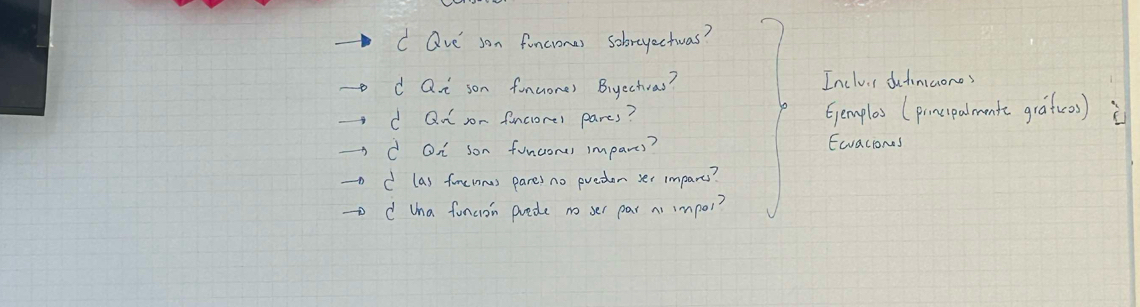 ¿ Qué son funciones sobreyectivas?
¿ Qué son funciones Biyectivas?
¿ Qué son funciones pares?
¿ Qué son funciones impares?
¿ las funciones pares no pueden ser impares?
¿ Una función puede no ser par ni impar?
Incluir definiciones
Ejemplos (principalmente gráficos)
Ecuaciones